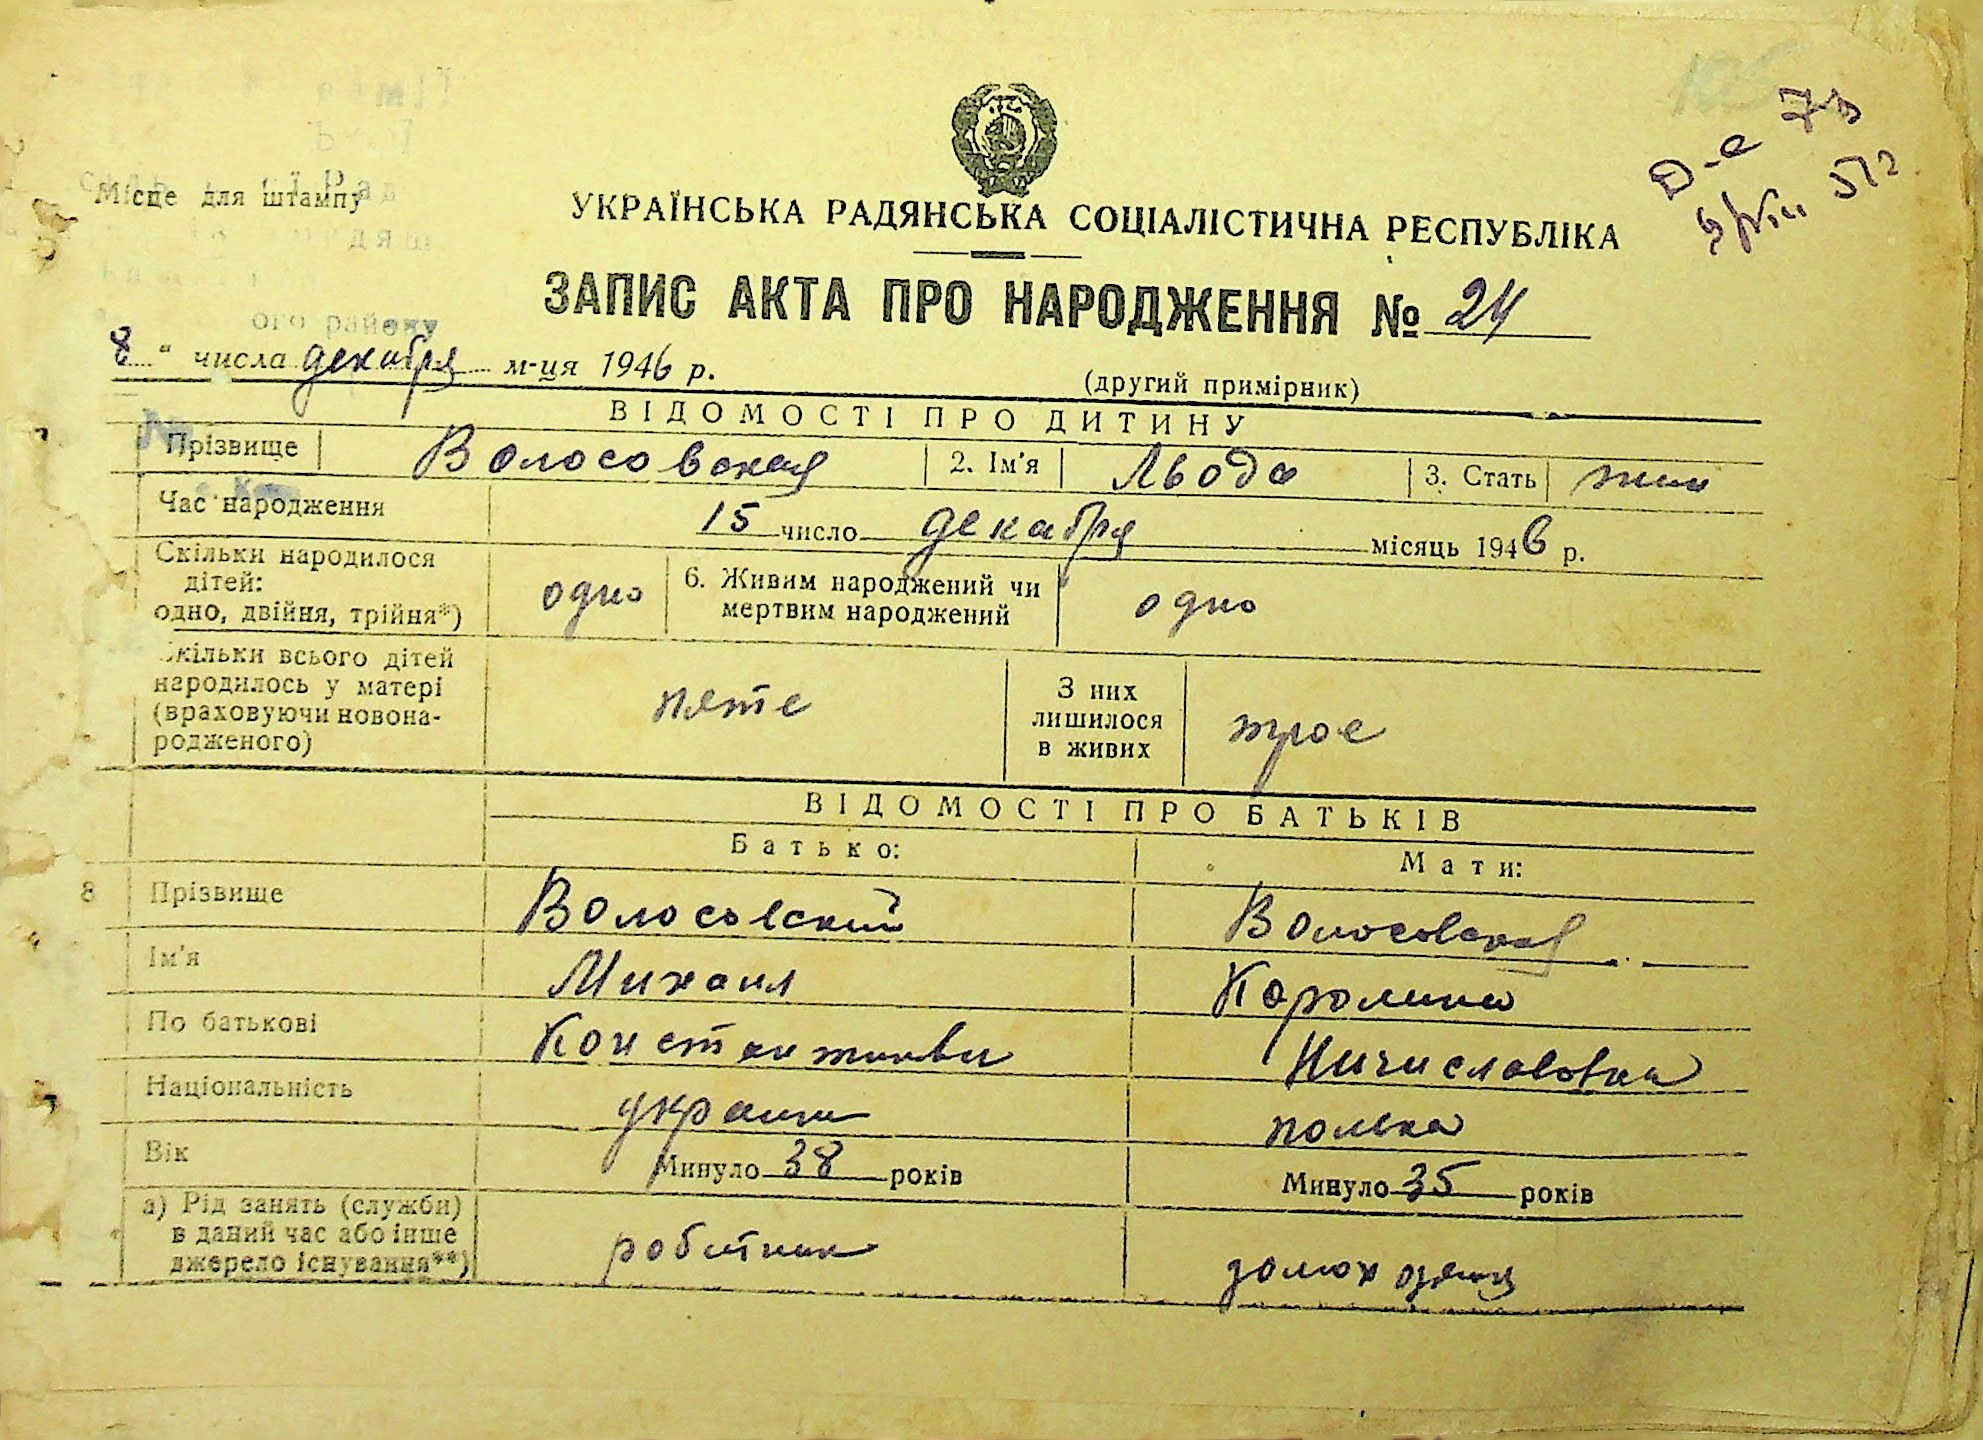 105
Д-а 7
512
Місце для штампу
УКРАЇНСЬКА РАДЯНСЬКА СОЦІАЛІСТИЧНА РЕСПУБЛІКА
ЗАПИС АКТА ПРО НАРОДЖЕННЯ № 24
ого району
8 " числа декабря м-ця 1946 р.
(другий примірник)
ВІДОМОСТІ ПРО ДИТИНУ
Прізвище Волосовская 2. Ім'я Льода 3. Стать жин
Час народження 15 число декабря місяць 1946 р.
Скільки народилося
дітей:
одно, двійня, трійня*) одно 6. Живим народжений чи
мертвим народжений одно
Скільки всього дітей
народилось у матері
(враховуючи новона-
родженого) пяте З них
лишилося
в живих трое
ВІДОМОСТІ ПРО БАТЬКІВ
Батько: Мати:
8 Прізвище Волосовский Волосовская
Ім'я Михаил Каролина
По батькові Константинови
Національність украин полька
Вік Минуло 38 років Минуло 35 років
а) Рід занять (служби)
в даний час або інше
джерело існування**) робітник домохозяица